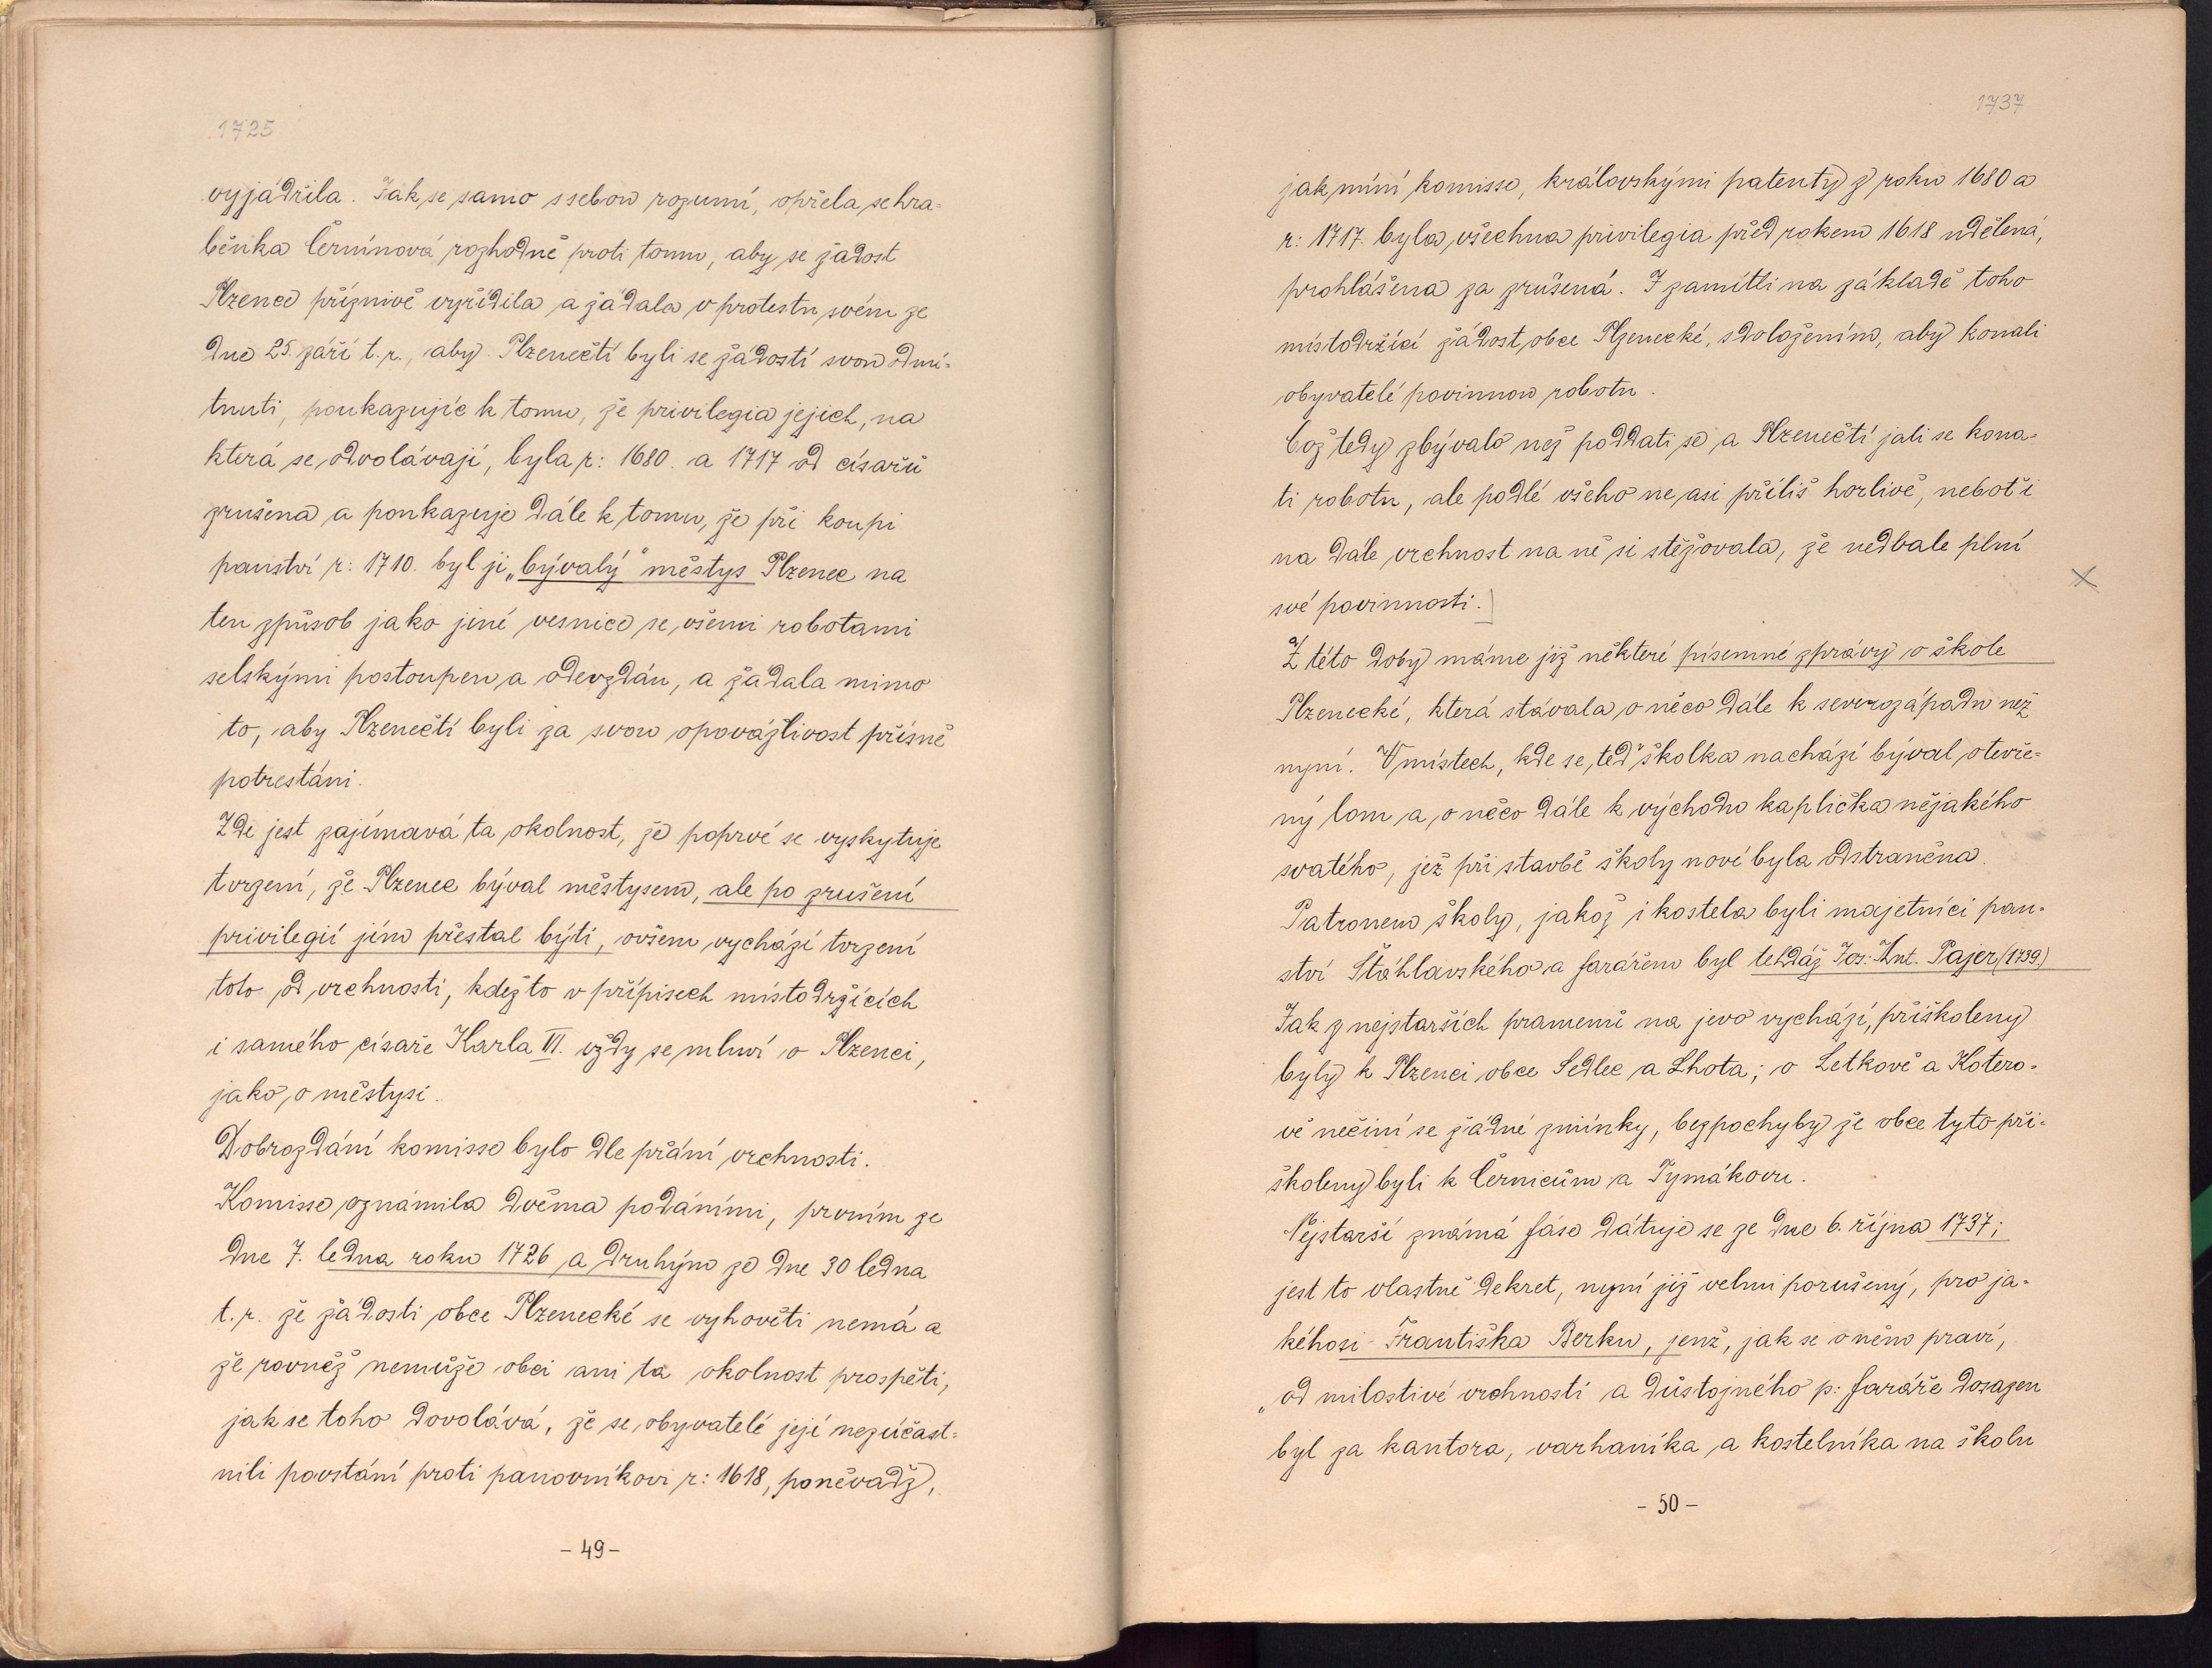 1725
vyjádřila. Jak se samo ssebou rozumí, opřela se hra-
běnka Černínová rozhodně proti tomu, aby se žádost
Plzence příznivě vyřídila a žádala v protestu svém ze
dne 25. září t. r., aby Plzenečtí byli se žádostí svou odmí-
tnuti, poukazujíc k tomu, že privilegia jejich, na
která se odvolávají, byla r: 1680. a 1717 od císařů
zrušena a poukazuje dále k tomu, že při koupi
panství r: 1710. byl jí „bývalý“ městys Plzenec na
ten způsob jako jiné vesnice se všemi robotami
selskými postoupen a odevzdán, a žádala mimo
to, aby Plzenečtí byli za svou opovážlivost přísně
potrestáni.
Zde jest zajímavá ta okolnost, že poprvé se vyskytuje
tvrzení, že Plzenec býval městysem, ale po zrušení
privilegií jím přestal býti, ovšem vychází tvrzení
toto od vrchnosti, kdežto v přípisech místodržících
i samého císaře Karla VI. vždy se mluví o Plzenci,
jako o městysi.
Dobrozdání komisse bylo dle přání vrchnosti.
Komisse oznámila dvěma podáními, prvním ze
dne 7. ledna roku 1726 a druhým ze dne 30 ledna
t. r. že žádosti obce Plzenecké se vyhověti nemá a
že rovněž nemůže obci ani ta okolnost prospěti,
jak se toho dovolává, že se obyvatelé její nezúčast-
nili povstání proti panovníkovi r: 1618, poněvadž,
- 49 -
1737
jak míní komisse, královskými patenty z roku 1680 a
r: 1717. byla všechna privilegia před rokem 1618 udělená,
prohlášena za zrušená. I zamítli na základě toho
místodržící žádost obce Plzenecké, s doložením, aby konali
obyvatelé povinnou robotu.
Což tedy zbývalo než poddati se a Plzenečtí jali se kona-
ti robotu, ale podlé všeho ne asi příliš horlivě, neboť i
na dále vrchnost na ně si stěžovala, že nedbale plní
své povinnosti.
Z této doby máme již některé písemné zprávy o škole
Plzenecké, která stávala o něco dále k severozápadu než
nyní. V místech, kde se teď školka nachází býval otevře-
ný lom a o něco dále k východu kaplička nějakého
svatého, jež při stavbě školy nové byla odstraněna.
Patronem školy, jakož i kostela byli majetníci pan-
ství Šťáhlavského a farářem byl tehdáž Jos: Ant. Pajer (1739.)
Jak z nejstarších pramenů na jevo vychází, přiškoleny
byly k Plzenci obce Sedlec a Lhota; o Letkově a Kotero-
vě nečiní se žádné zmínky, bezpochyby že obce tyto při-
školeny byli k Černicům a Tymákovu.
Nejstarší známá fáse dátuje se ze dne 6. října 1737;
jest to vlastně dekret, nyní již velmi porušený, pro ja-
kéhosi Františka Berku, jenž, jak se o něm praví,
„od milostivé vrchnosti a důstojného p: faráře dosazen
byl za kantora, varhaníka a kostelníka na školu
- 50 -